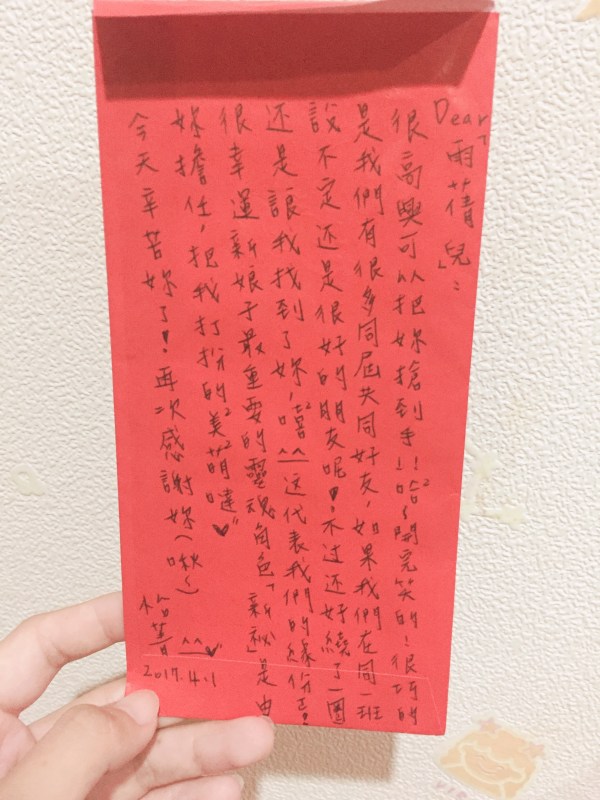 Dear「雨蒨兒」：
很高興可以把妳搶到手！！哈²～開完笑的！很巧的
是我們有很多同屆共同好友，如果我們在同一班
說不定还是很好的朋友呢♥！不过还好繞了一圈
还是讓我找到了妳，嘻²^^这代表我們的緣份！
很幸運新娘子最重要的靈魂角色「新祕」是由
妳擔任，把我打扮的²美²萌噠"♥
今天辛苦妳了♥！再次感謝妳(啾～) ^^♥
2017.4.1